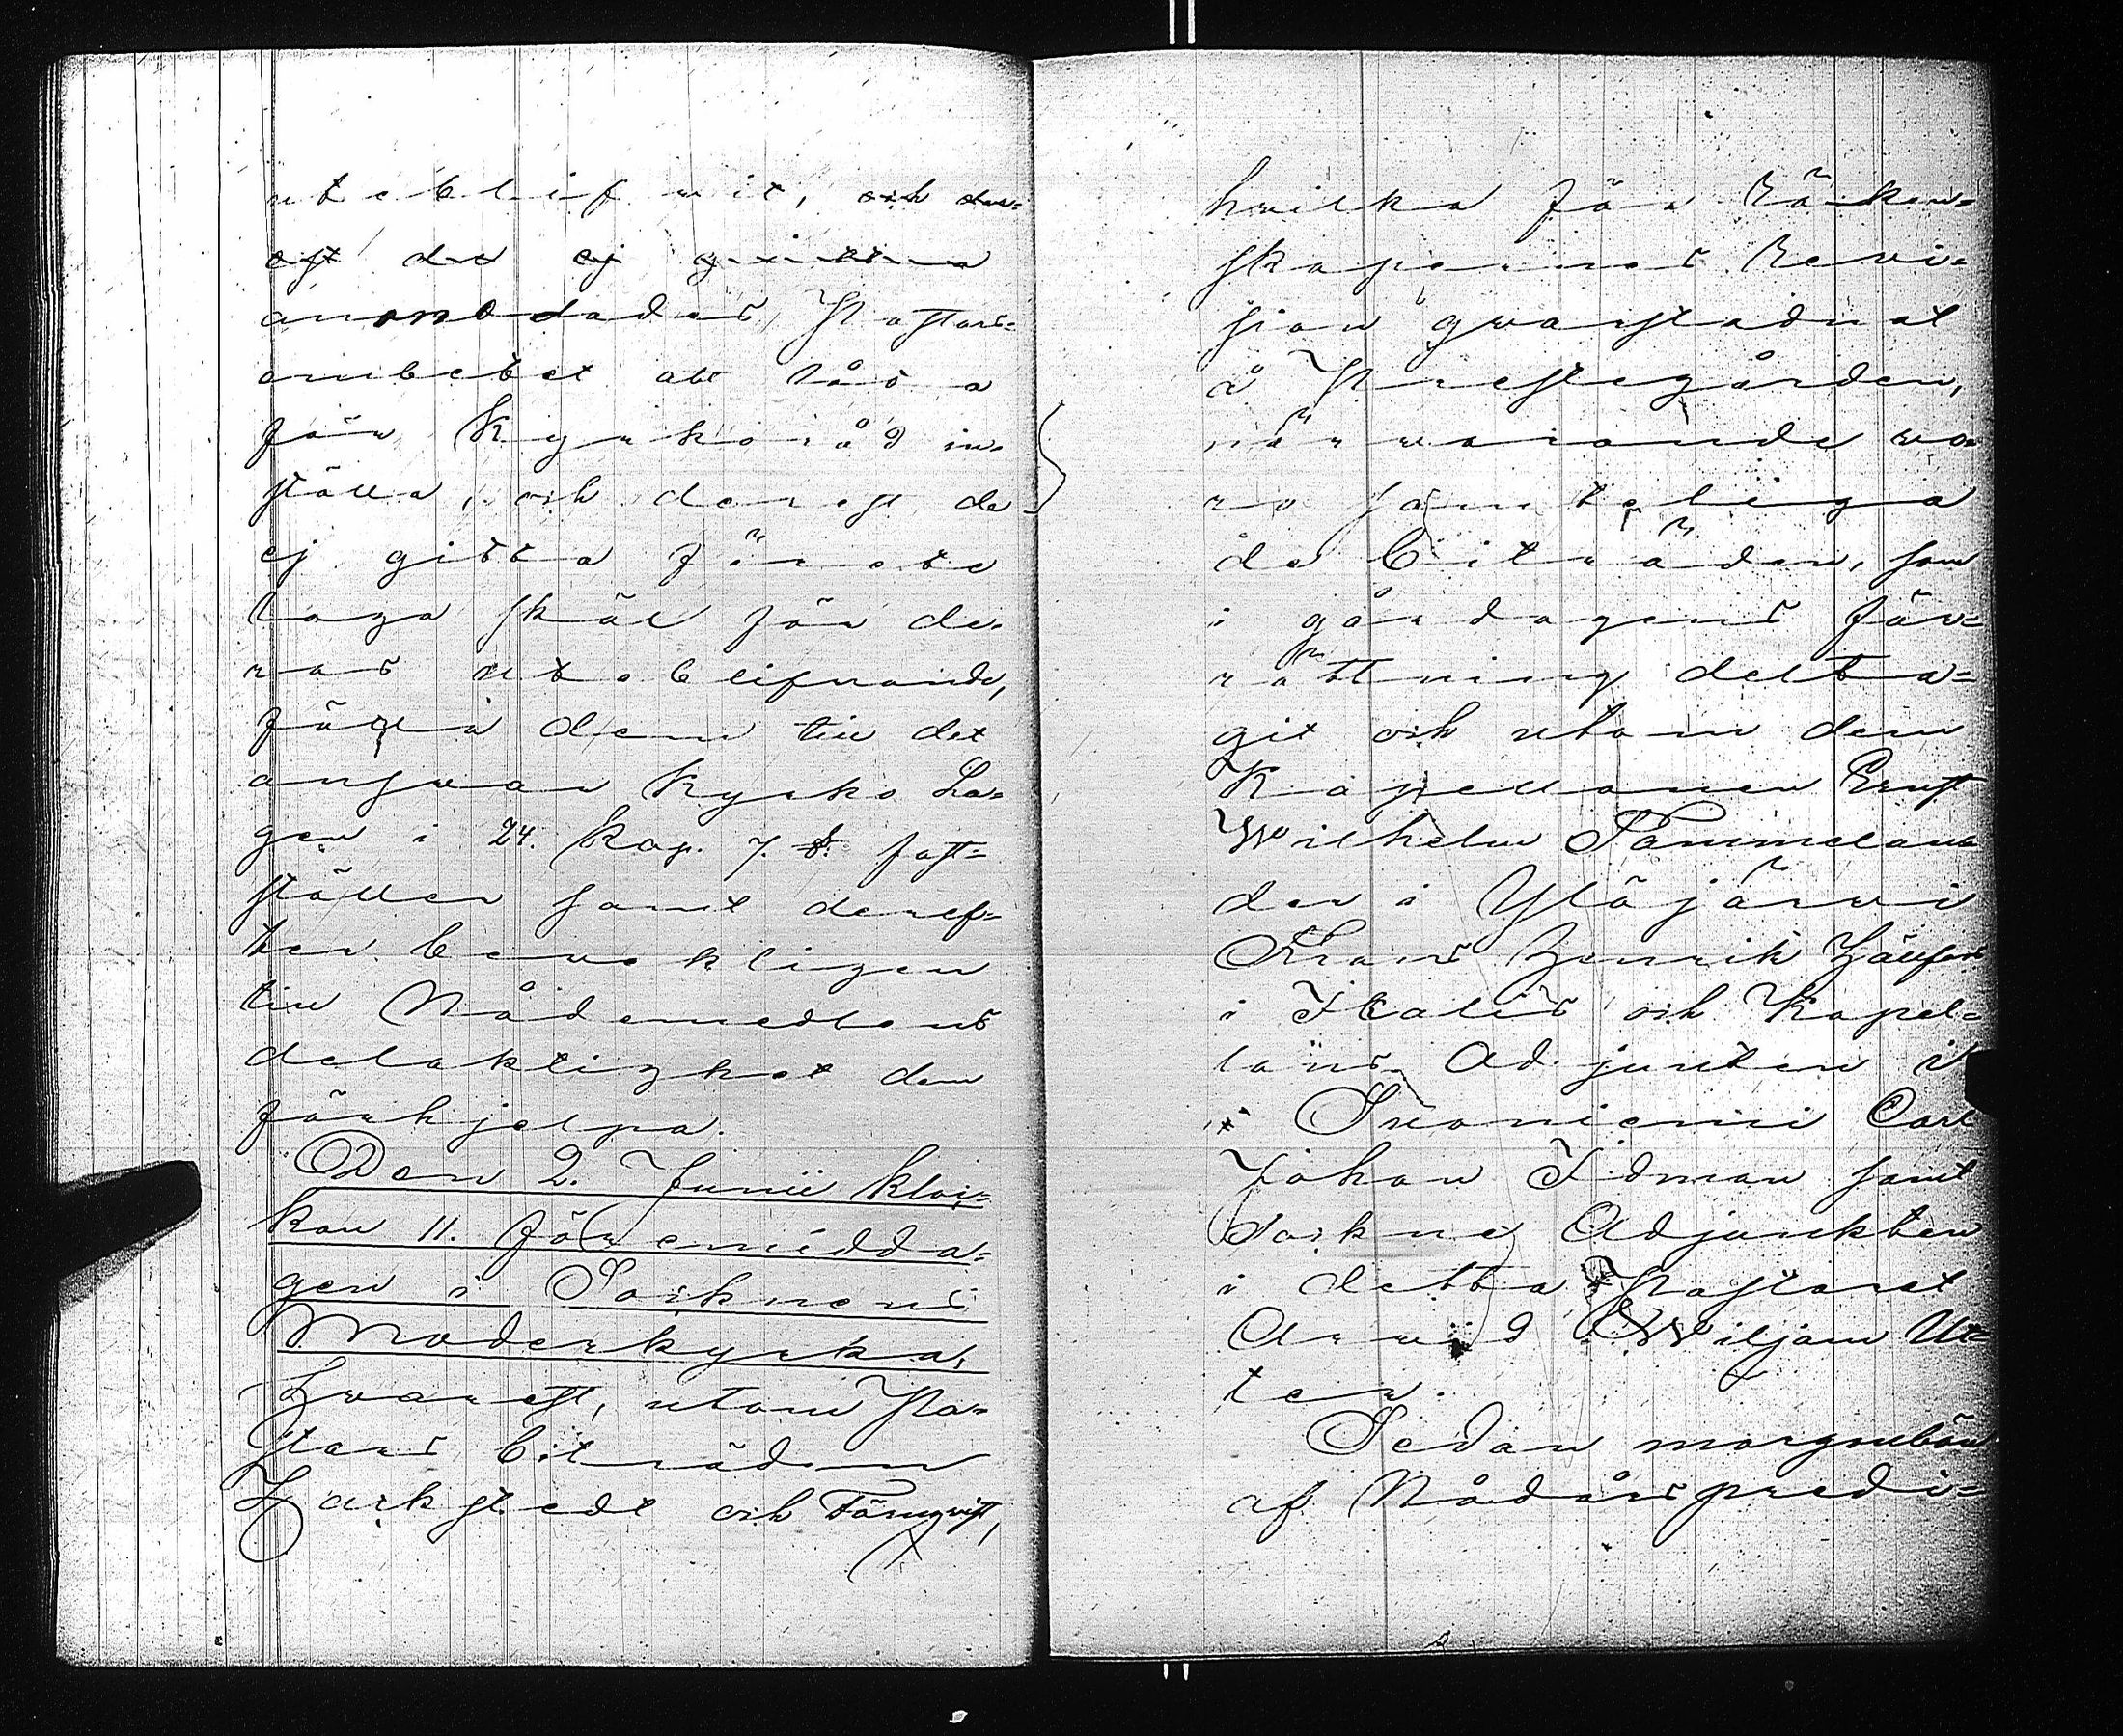 uteblifwit, och der-
est de ej gitta
anmodades Pastors-
embetet att låta
för Kyrkoråd in-
ställa, och derest de
ej gitta förete
laga skäl för de-
ras uteblifvande,
fälla dem till det
answar Kyrko La-
gen i 24. Kap. 7. §. fast-
ställer samt deref-
ter benekligen
till Nådemedlens
delaktighet dem
förhjelpa.
Den 2. Junii kloc-
kan 11. förmidda-
gen i Socknens
Moderkyrka,
Hvarest, utom Pa-
stors biträden
Zackstedt och Törnqvist,
hvilka för Räken-
skapernes Revi-
sion qvarstadnat
å Prestegården,
närvarande wo-
ro samteliga
de biträden, som
i gårdagens för-
rättning delta-
git och utom dem
Kapellanen Ernst
Wilhelm Pammelan-
der i Ylöjärwi
Frans Henrik Hällfors
i Ikalis och Kapel-
lans Adjunkten
i Suoniemi Carl
Johan Idman samt
Sockne Adjunkten
i detta Pastorat
Arvid Wiljam Ut-
ter.
Sedan morgonbön
af Nådårspredi-